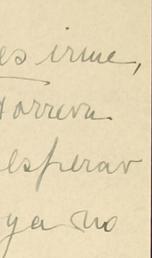 es irme,
torreon
esperar
ya no